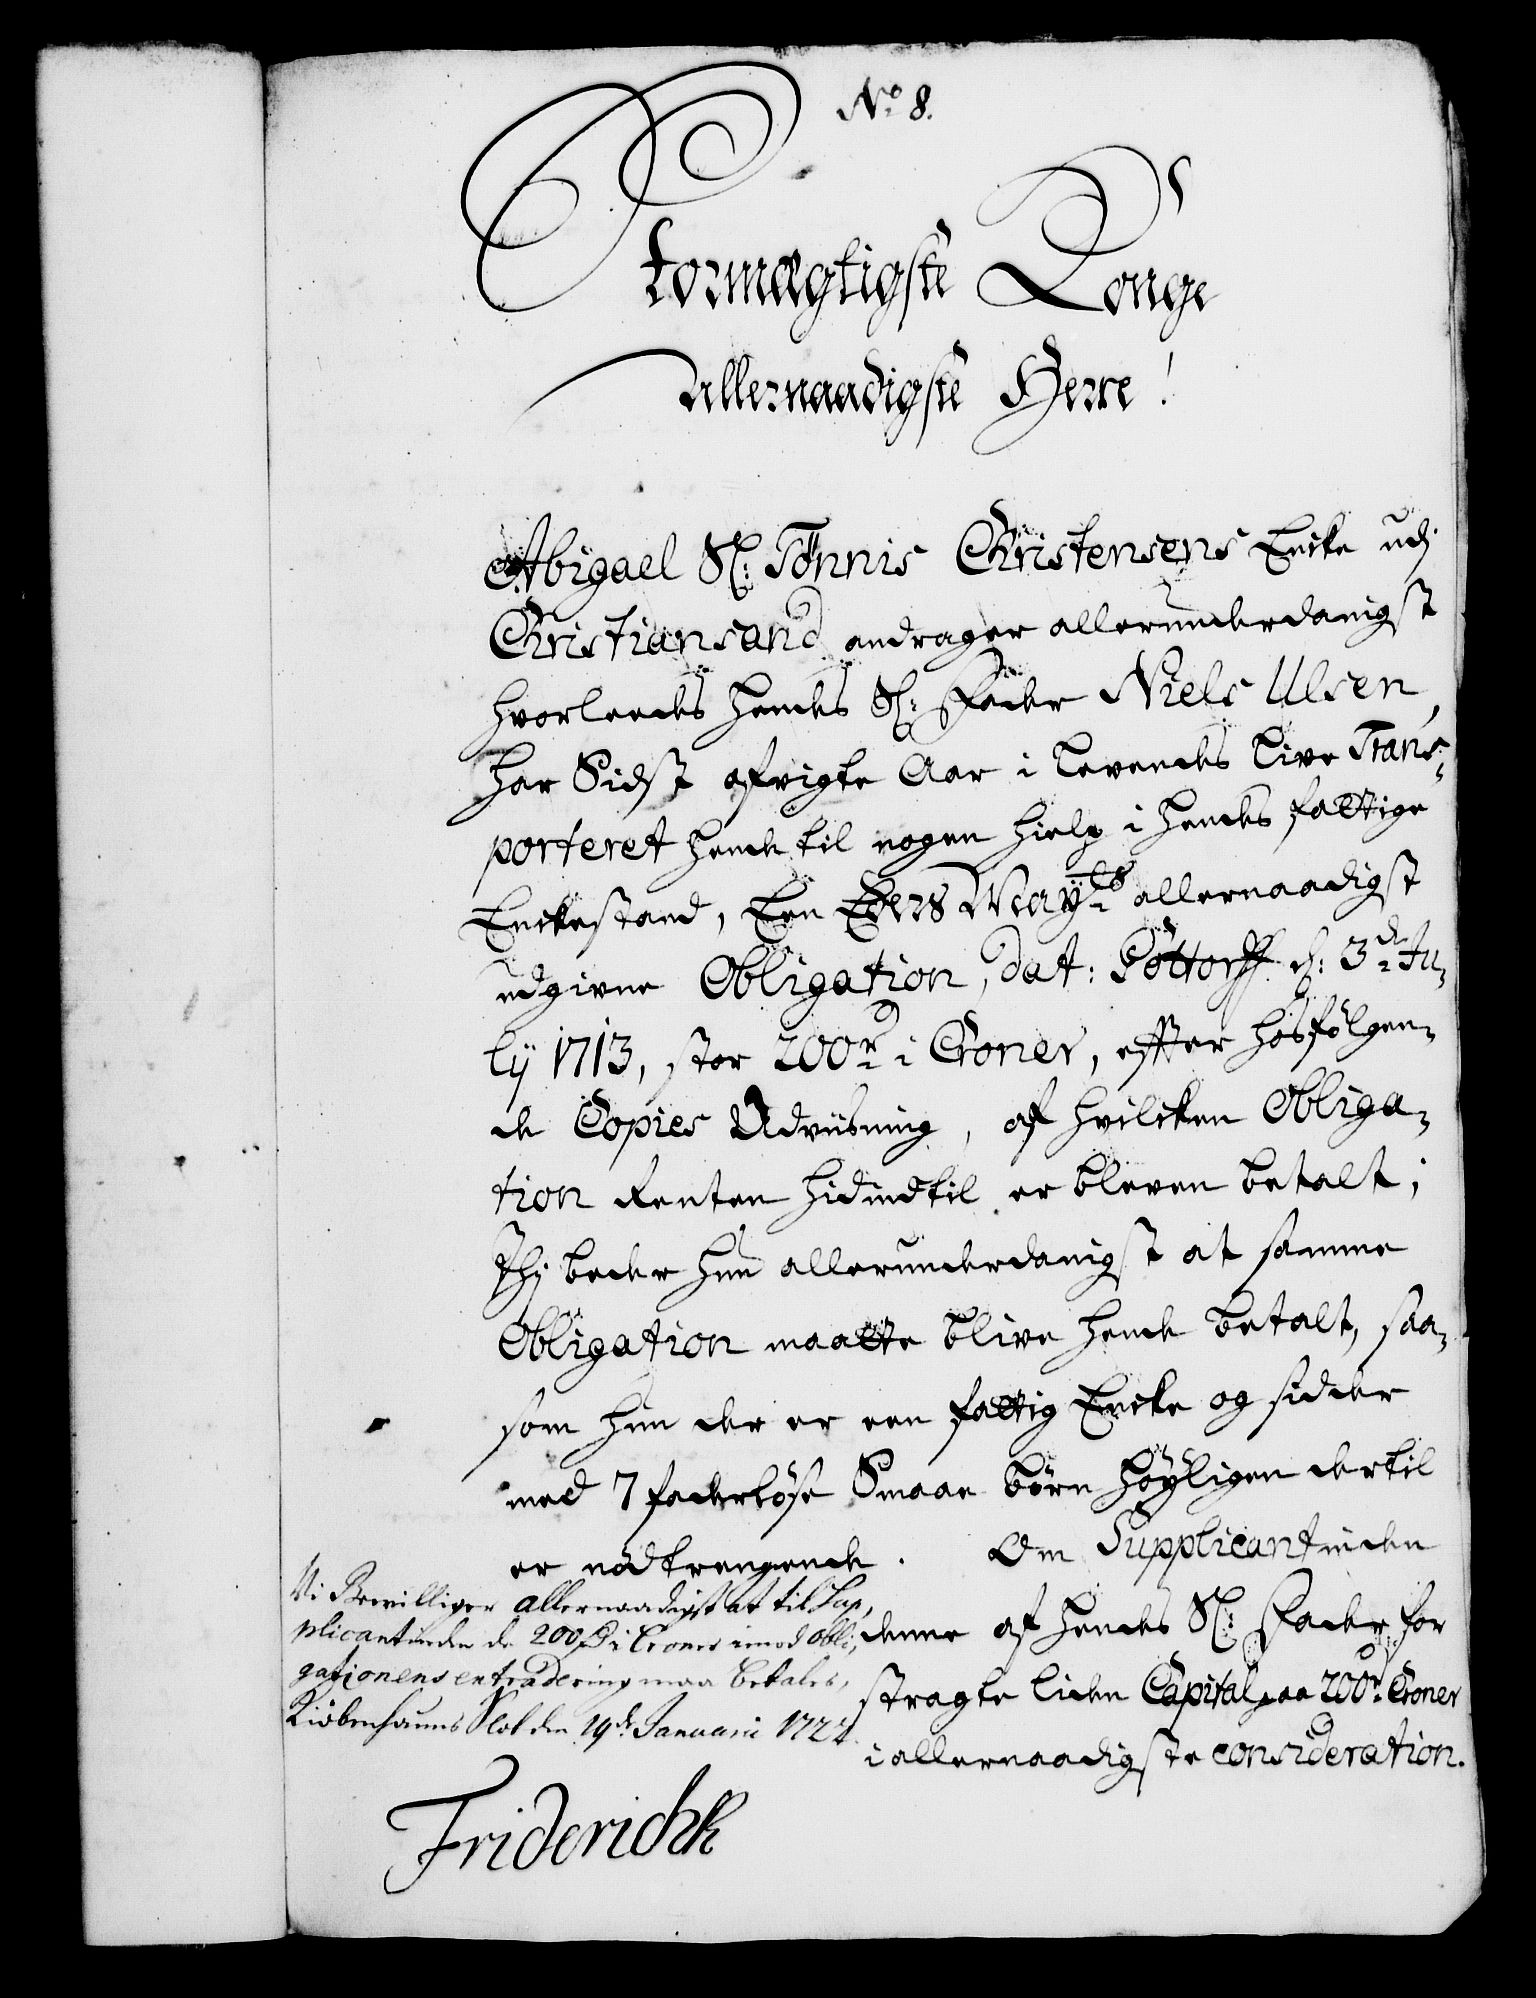 No 8.
Stormægtigste Konge
Allernaadigste Herre!
Abigael Sl: Tönnis Christensens Encke udj
Christiansand andrager allerunderdanigst
hvorledes hendes Sl: Fader Niels Ulsen,
har Sidst afvigte Aar i levendes live Trans-
porteret hende til nogen hielp i hendes fattige
Enckestand, Een Eders Mayts allernaadigst
udgivne Obligation, dat: Gottorff d: 3de Ju-
ly 1713, stor 200rd i Croner, effter hosfölgen-
de Copies Udviisning, af hvilcken Obliga-
tion Renten hidindtil er bleven betalt;
Thj beder hun allerunderdanigst at samme
Obligation maatte blive hende betalt, saa-
som hun der er een fattig Encke og sidder
med 7 faderlöse Smaae börn höyligen dertil
er nödtrengende. Om Supplicantinden
denne af hendes Sl: Fader for
stragte liden Capital paa 200rd Croner
i allernaadigste consideration.
Vi Bewilliger allernaadigst at til Sup-
plicantinden de 200 rd i Croner imod Obli-
gationens extradering maa betales,
Kiøbenhauns Slot den 19de Januarii 1722.
Friderich R